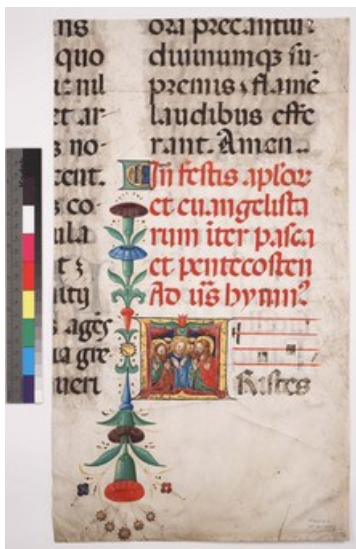 quo
nil
et ar-
no-
cent.
co-
ula
ages
gre
ueri
ora precantur
diuinumqꝫ su-
premis ⁊ flamē
laudibus effe
rant. Amen.
In festis aploꝝ
et euangelista
rum īter pasca
et pentecosten
Ad ūs hymnꝰ
Ristes